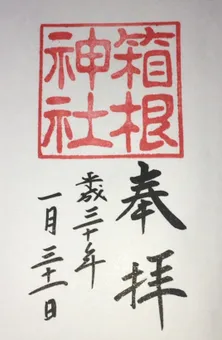 箱根
神社
奉拝
平成三十年
一月三十一日